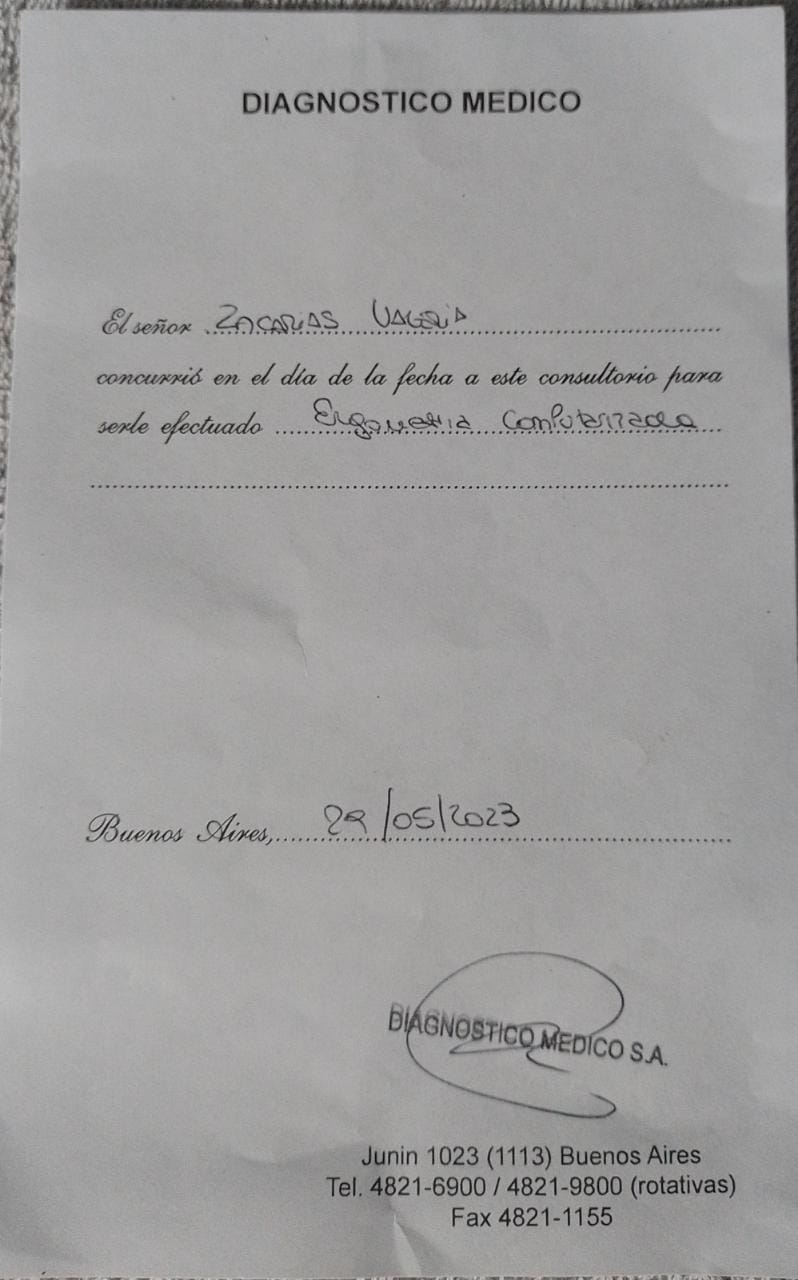 DIAGNOSTICO MEDICO
El señor ZACARIAS VALERIA
concurrió en el día de la fecha a este consultorio para
serle efectuado Ergometria Computarizada
Buenos Aires, 29/05/2023
DIAGNOSTICO MEDICO S.A.
Junin 1023 (1113) Buenos Aires
Tel. 4821-6900 / 4821-9800 (rotativas)
Fax 4821-1155